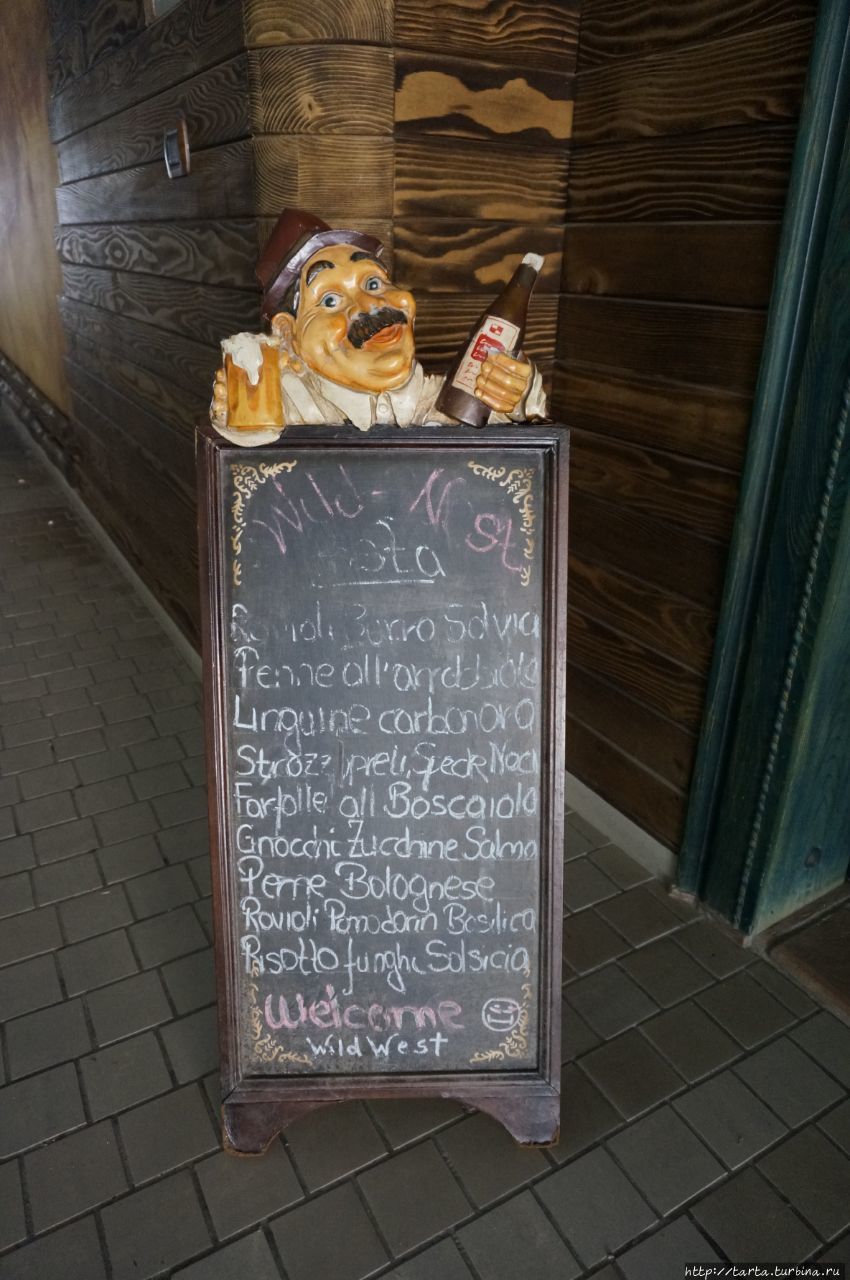 Wild-West
Pasta
Ravioli Burro Salvia
Penne all'arrabbiata
Linguine carbonara
Strozzapreti, Speck Noci
Farfalle all Boscaiola
Gnocchi Zucchine Salmo
Penne Bolognese
Ravioli Pomodorin Basilico
Risotto funghi Salsicia
Welcome
Wild West
http://tarta.turbina.ru